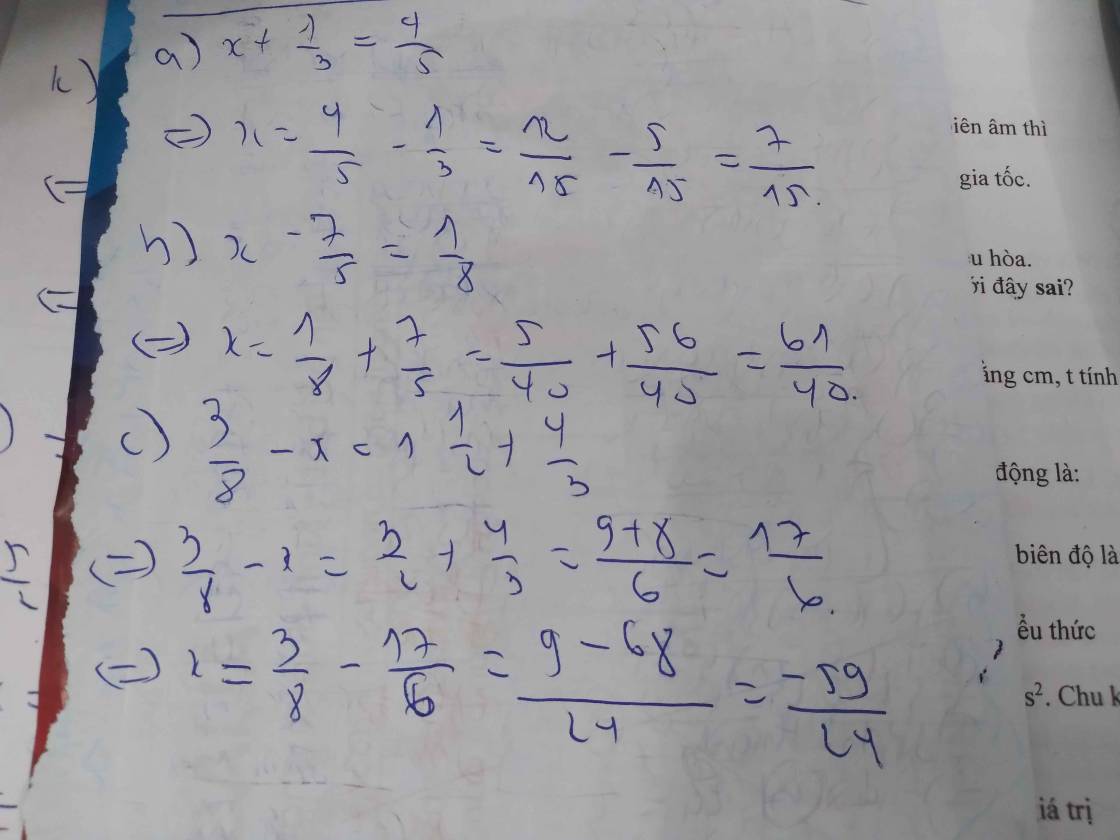 a) x + 1/3 = 4/5
⇔ x = 4/5 - 1/3 = 12/15 - 5/15 = 7/15.
b) x - 7/5 = 1/8
⇔ x = 1/8 + 7/5 = 5/40 + 56/40 = 61/40.
c) 3/8 - x = 1 1/2 + 4/3
⇔ 3/8 - x = 3/2 + 4/3 = 9+8/6 = 17/6.
⇔ x = 3/8 - 17/6 = 9-68/24 = -59/24
k)
iên âm thì
gia tốc.
u hòa.
ới đây sai?
ằng cm, t tính
động là:
biên độ là
ểu thức
s². Chu k
iá trị